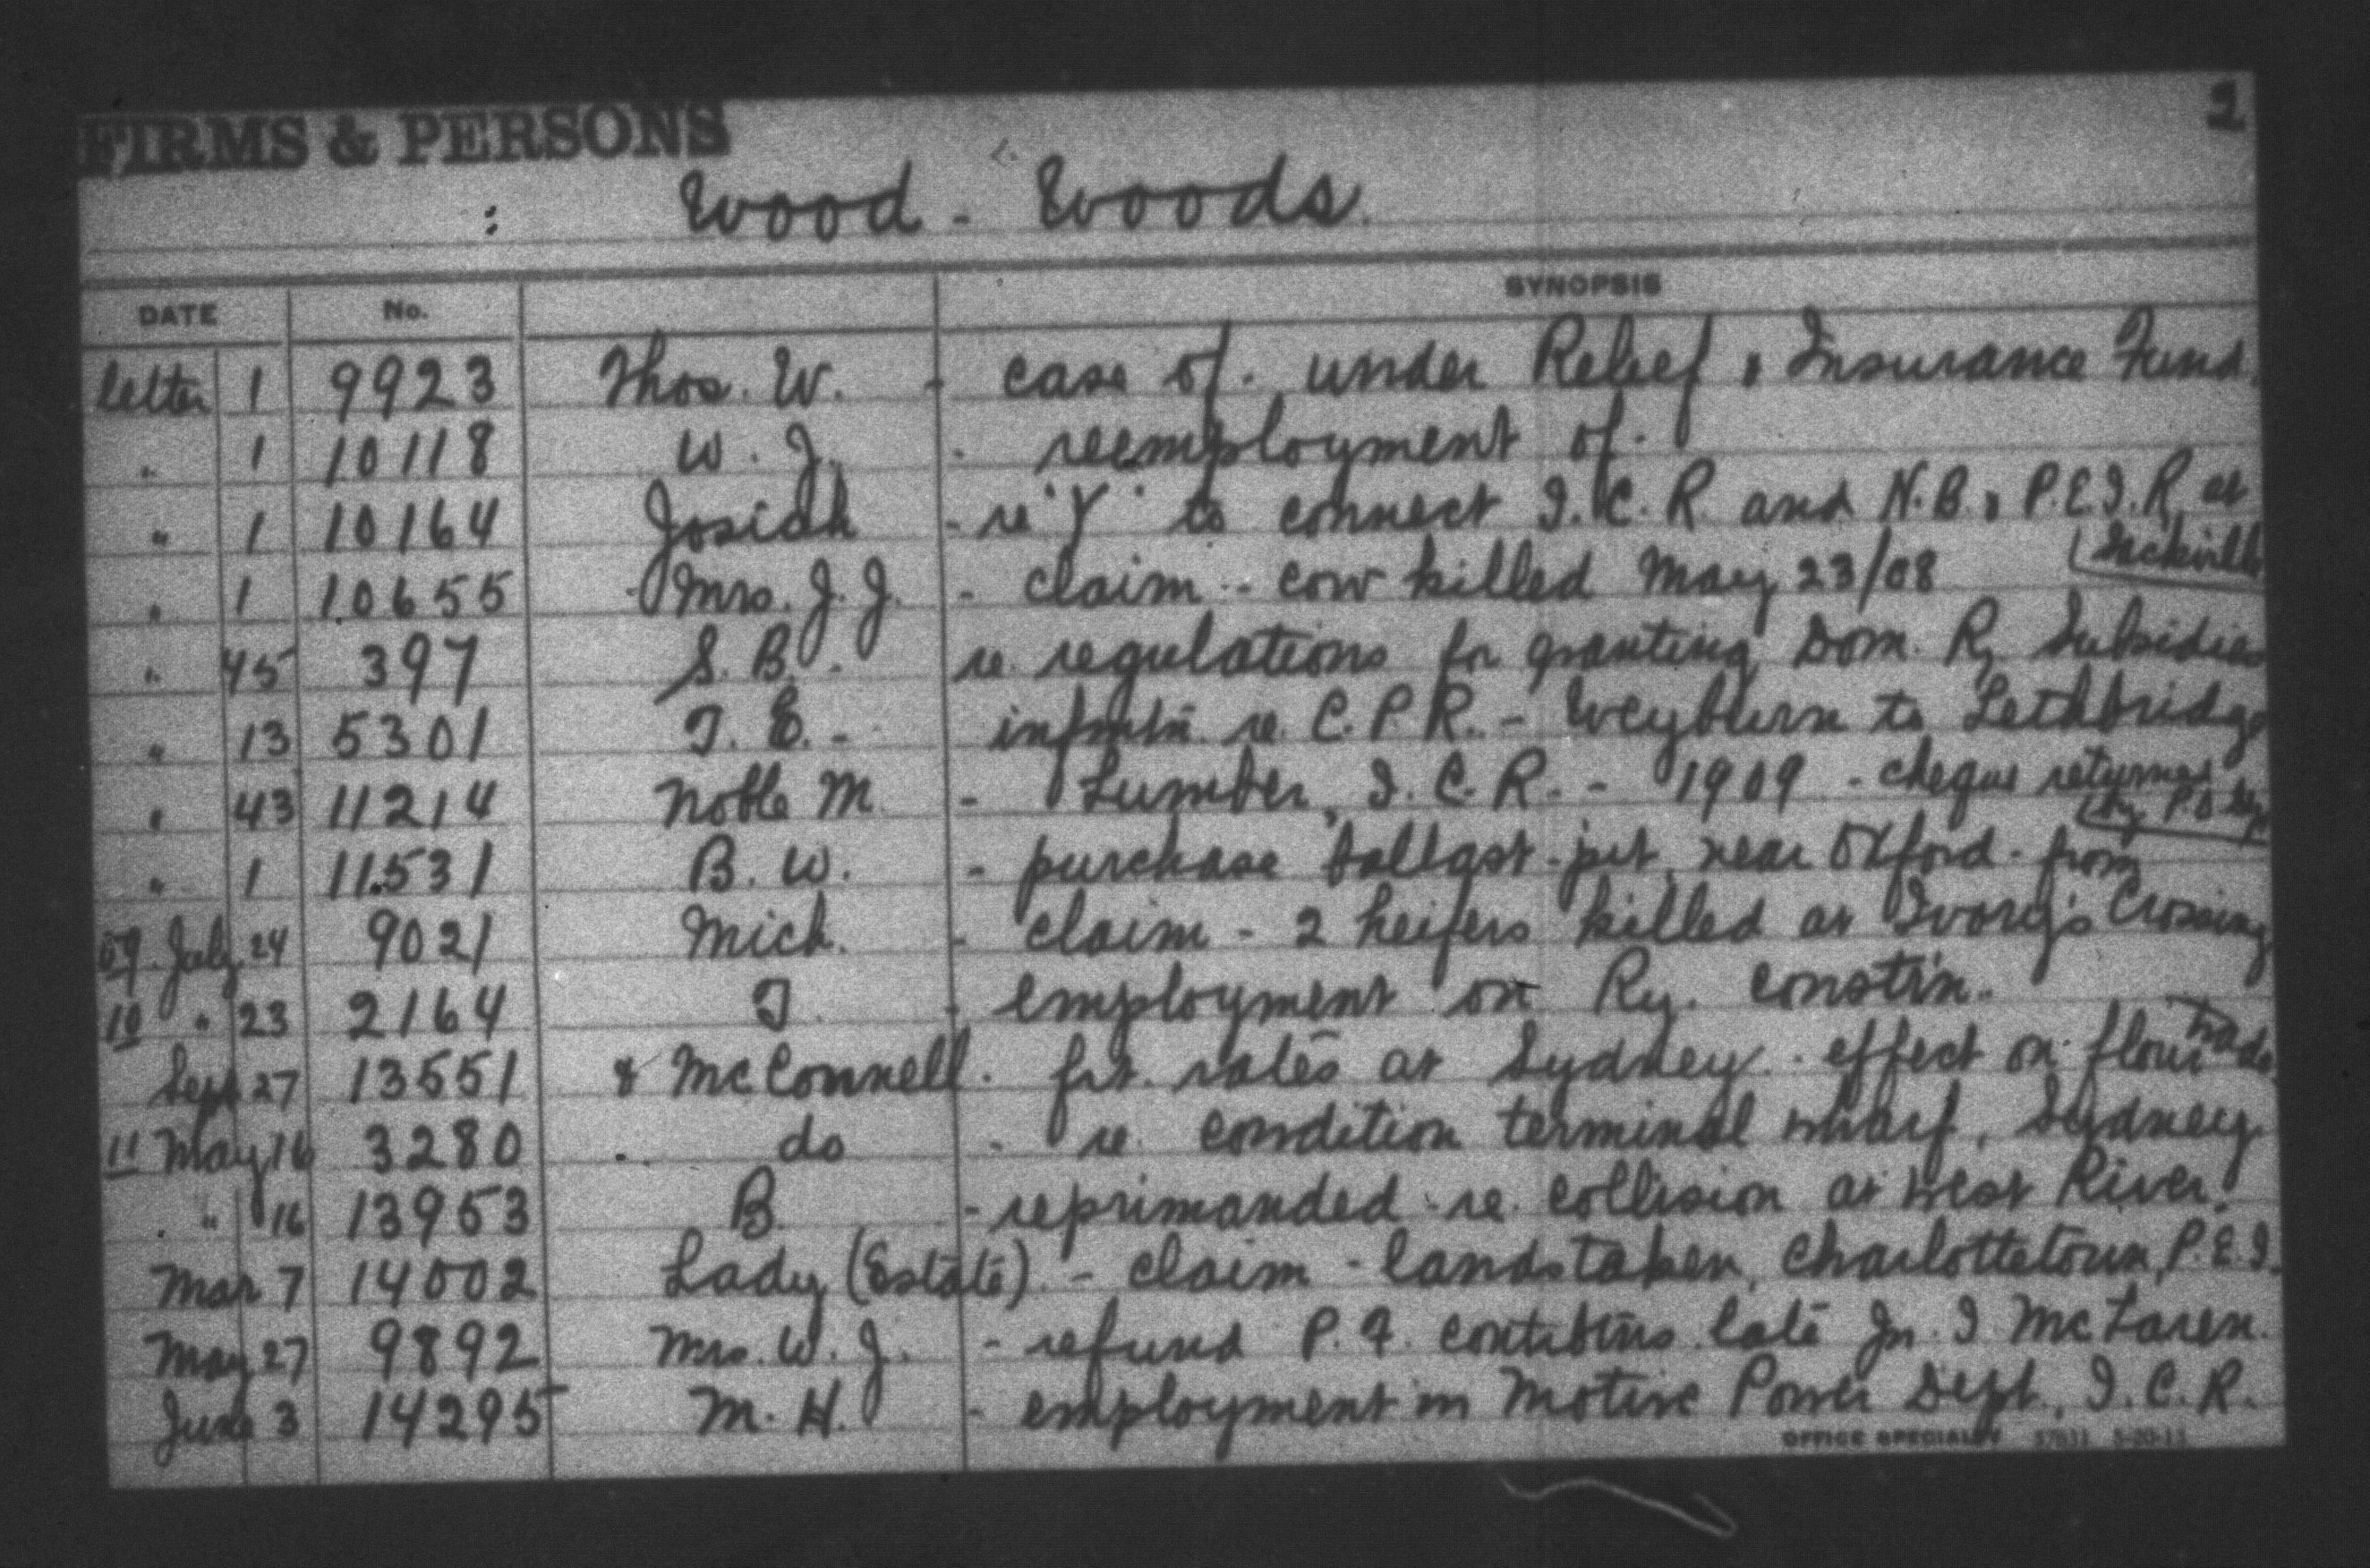 FIRMS & PERSONS 2
: Wood - Woods
DATE No. SYNOPSIS
letter 1 9923 Thos. W. - case of. under Relief & Insurance Fund.
" 1 10118 W. J. - reemployment of.
" 1 10164 Josiah - re "Y" to connect I.C.R. and N.B. & P.E.I.R. at
(Sackville
" 1 10655 - Mrs. J. J. - claim - cow killed May 23/08
" 45 397 S. B. - re regulations for granting Dom. Ry Subsidies
" 13 5301 T. E. - infmtn re. C.P.R. - Weyburn to Lethbridge
" 43 11214 Noble M. - Lumber, I.C.R. - 1909 - cheque returned
(by P.O. Dep
" 1 11531 B. W. - purchase ballast-pit, near Oxford - from
09 July 24 9021 Mich. - claim - 2 heifers killed at Ivory's Crossing
10 " 23 2164 T. - employment on Ry. constn.
Sept 27 13551 & McConnell. frt. rates at Sydney - effect on flour trade
11 May 16 3280 " do - re condition terminal wharf, Sydney
" " 16 13953 B. - reprimanded - re. collision at West River.
Mar 7 14002 Lady (Estate) - claim - lands taken, Charlottetown, P.E.I.
May 27 9892 Mrs. W. J. - refund P.F. contibtns late Jn. I McLaren.
June 3 14295 M. H. - employment in Motive Power Dept., I.C.R.
OFFICE SPECIALTY 57631 5-20-13